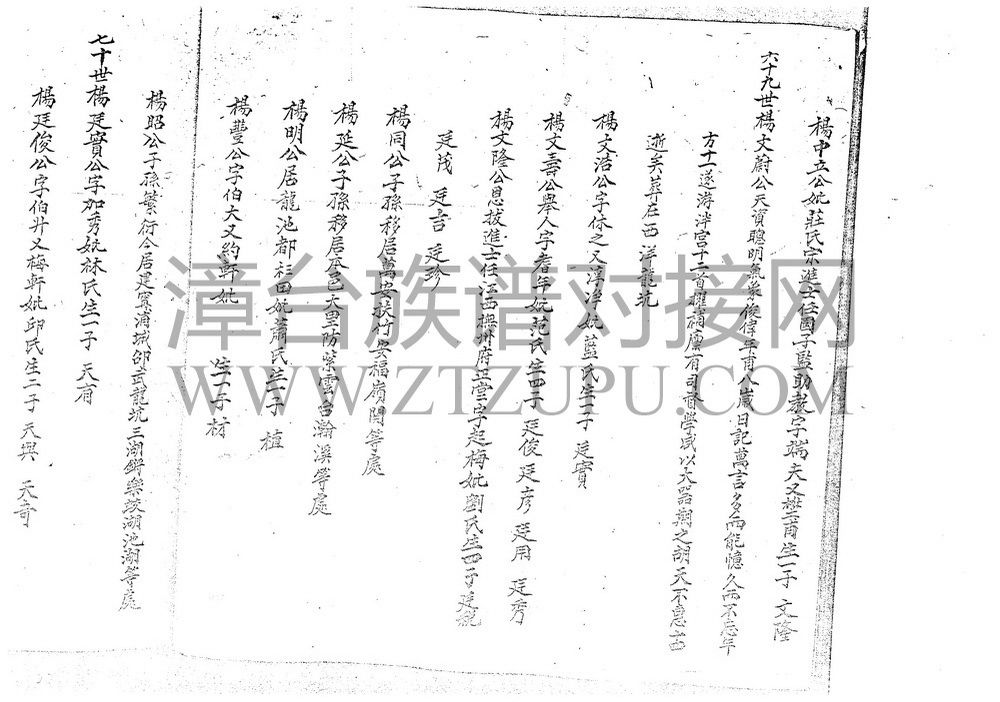 楊中立公妣莊氏宗進士任國子監助教字端夫又 生一子 文隆
六十九世楊文蔚公天資聰明氣象俊偉年甫八歲日記萬言多而能憶久而不忘年
方十一遂游泮宮十二首擢補廩有司督學咸以大器期之胡天不惠
逝矣葬在西洋龍坑
楊文浩公字休之又淳淳妣藍氏生一子 廷實
楊文壽公舉人字耆年妣范氏生四子 廷俊 廷彥 廷用 廷秀
楊文隆公恩拔進士任江西撫州府正堂字起梅妣劉氏生四子廷魁
廷茂 廷吉 廷珍
楊同公子孫移居萬安扶竹安福嶺閂等處
楊延公子孫移居本邑大里防紫雲台瀚溪等處
楊明公居龍池都杉田妣蕭氏生一子 植
楊豐公字伯大又約軒妣 生一子 材
楊昭公子孫繁衍今居建寧浦城邵武龍坑三湖 樂 湖池湖等處
七十世楊廷實公字加秀妣林氏生一子 天甫
楊廷俊公字伯升又梅軒妣邱氏生二子 天與 天奇
漳台族谱对接网
WWW.ZTZUPU.COM